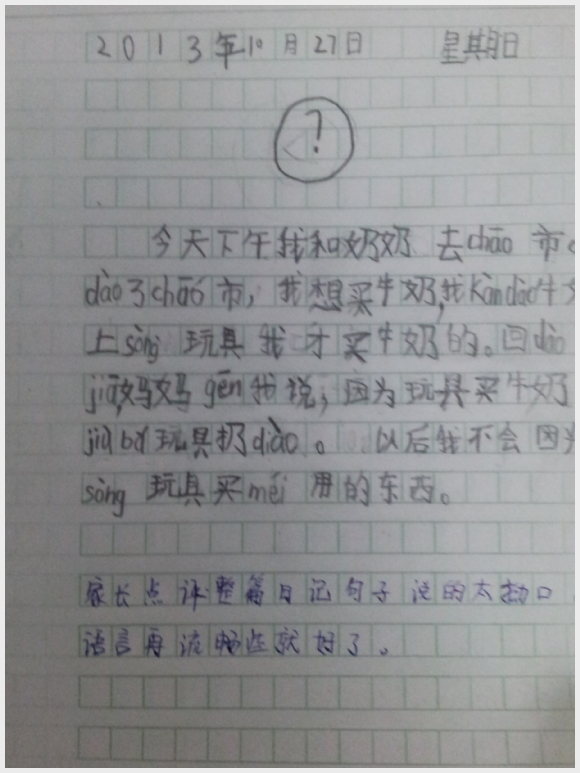 2013年10月27日 星期日
?
今天下午我和奶奶 去chāo 市。
dào了chāo市，我想买牛奶,我kàn dào牛
上sòng 玩具 我 才 买牛奶的。回dào
jiā,妈妈 gēn我说，因为玩具买牛奶
jiù bǎ 玩具扔diào。 以后我不会 因为
sòng 玩具买méi 用的东西。
家长点评:整篇日记句子说的太拗口
语言再流畅些就好了。